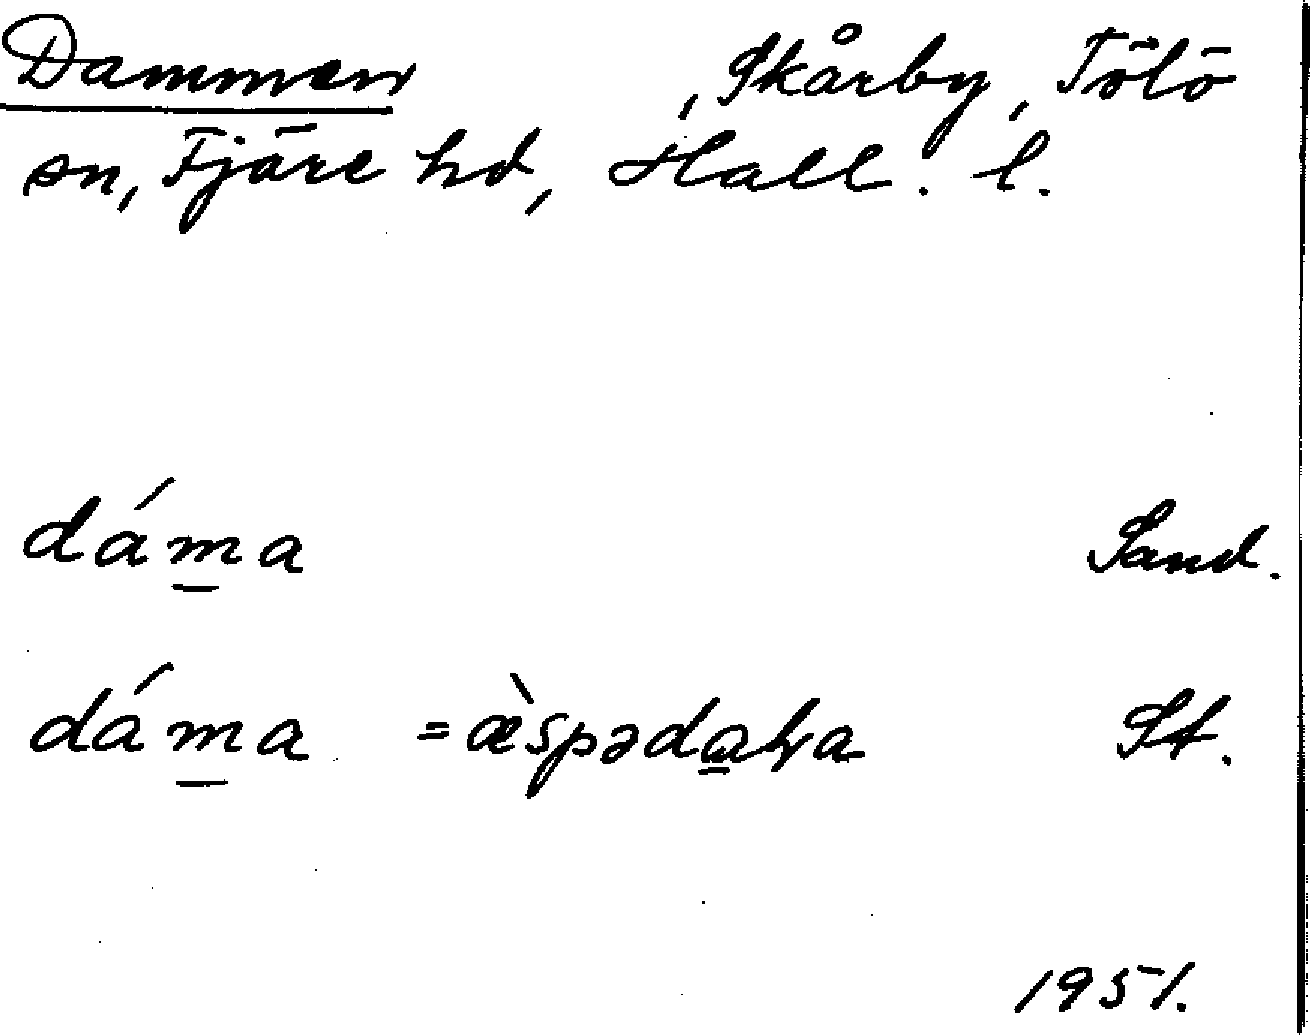 Dammen , Skårby, Tölö
sn, Fjäre hd, Hall. l.
dáma Sand.
dáma = æ̀spəda̲ka St.
1951.